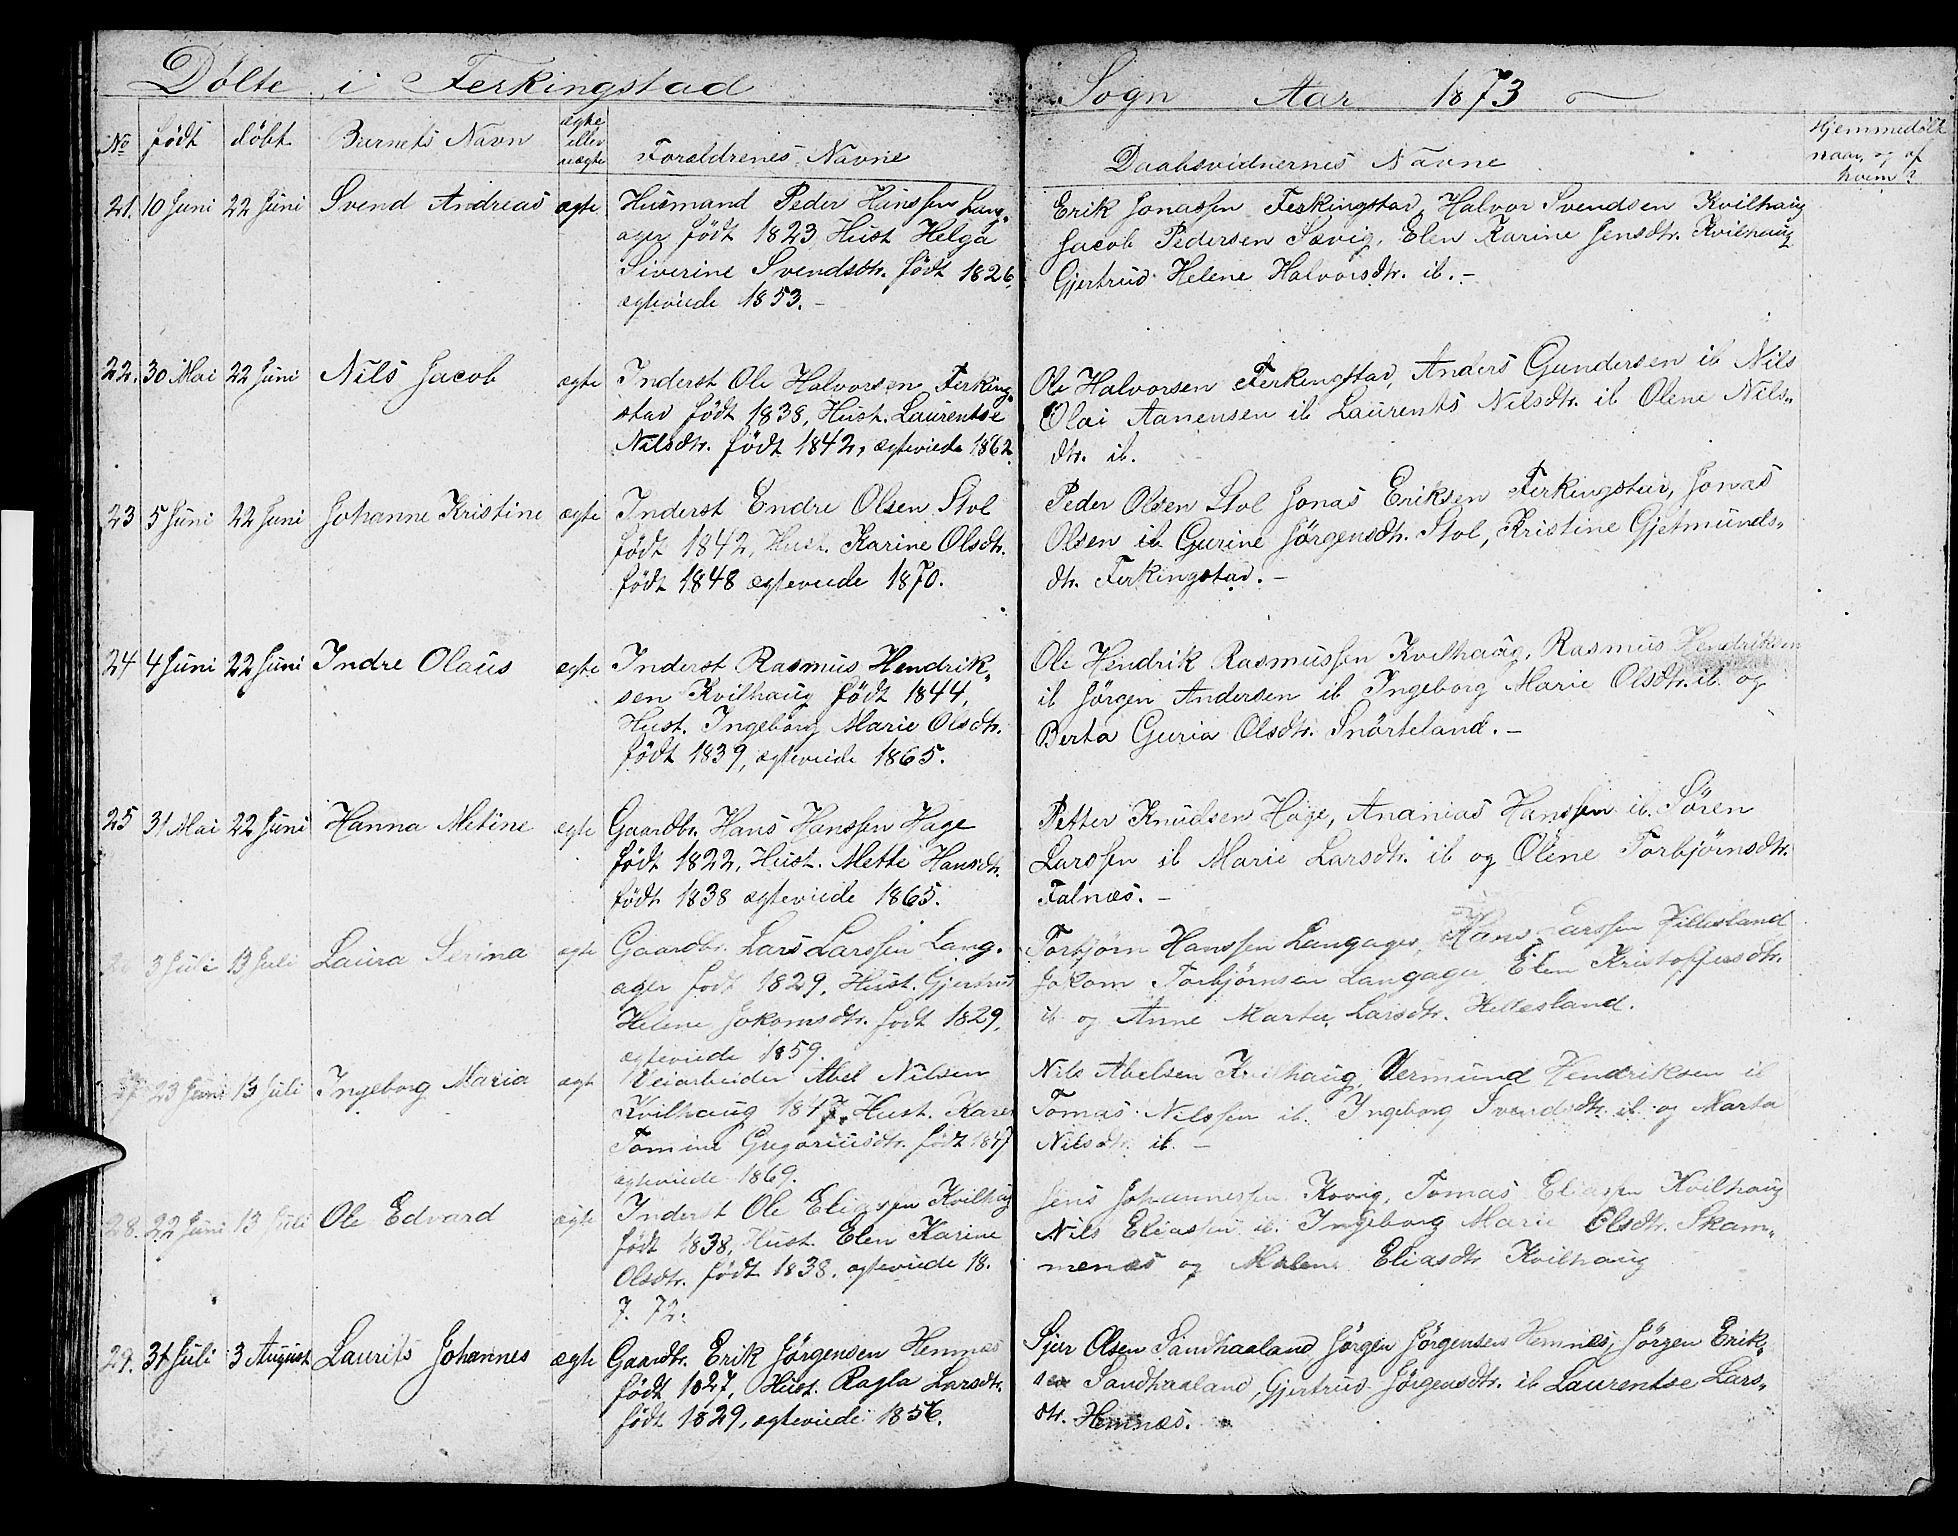 Døbte i Ferkingstad
Sogn Aar 1873
No født døbt Barnets Navn ægte eller uægte Forældrenes Navne
Daabsvidnernes Navne
Hjemmedøbt
naar, og af
hvem?
21. 10 Juni 22 Juni Svend Andreas ægte Husmand Peder Hanssen Lang-
ager født 1823 Hust Helga
Siverine Svendsdtr. født 1826
ægteviede 1853.-
Erik Jonassen Ferkingstad, Halvor Svendsen Kvilhaug
Jacob Pedersen Sævig, Elen Karine Jensdtr. Kvilhaug
Gjertrud Helene Halvorsdtr. ib.-
22. 30 Mai 22 Juni Nils Jacob ægte Inderst Ole Halvorsen Ferking-
stad født 1838, Hust. Laurentse
Nilsdtr. født 1842, ægteviede 1862.
Ole Halvorsen Ferkingstad, Anders Gundersen ib Nils
Olai Aanensen ib Laurents Nilsdtr. ib Olene Nils-
dtr. ib.
23 5 Juni 22 Juni Johanne Kristine ægte Inderst Endre Olsen Stol
født 1842, Hust. Karine Olsdtr.
født 1848 ægteviede 1870.
Peder Olsen Stol Jonas Eriksen Ferkingstad, Jonas
Olsen ib Gurine Jørgensdtr. Stol, Kristine Gjetmunds-
dtr. Ferkingstad.-
24 4 Juni 22 Juni Indre Olaus ægte Inderst Rasmus Hendrik-
sen Kvilhaug født 1844,
Hust. Ingeborg Marie Olsdtr.
født 1839, ægteviede 1865.
Ole Hendrik Rasmussen Kvilhaug, Rasmus Hendriksen
ib Jørgen Andersen ib Ingeborg Marie Olsdtr. ib og
Berta Guria Olsdtr. Snørteland.-
25 31 Mai 22 Juni Hanna Metine ægte Gaardbr. Hans Hanssen Hage
født 1822, Hust. Mette Hansdtr.
født 1838 ægteviede 1865.
Petter Knudsen Hage, Ananias Hanssen ib. Søren
Larssen ib Marie Larsdtr. ib og Olene Torbjørnsdtr.
Falnæs.-
26 3 Juli 13 Juli Laura Serina ægte Gaardbr. Lars Larssen Lang-
ager født 1829, Hust. Gjertrud
Helene Jokomsdtr. født 1829,
ægteviede 1859.
Torbjørn Hanssen Langager, Hans Larssen Hillesland
Jokom Torbjørnsen Langager Elen Kristoffersdtr.
ib og Anne Marta Larsdtr. Hillesland.
27 23 Juni 13 Juli Ingeborg Maria ægte Veiarbeider Abel Nilsen
Kvilhaug 1847, Hust. Karen
Tomine Gregoriusdtr. født 1847
ægteviede 1869.
Nils Abelsen Kvilhaug, Vermund Hendriksen ib
Tomas Nilssen ib. Ingeborg Svendsdtr. ib. og Marta
Nilsdtr. ib.-
28. 22 Juni 13 Juli Ole Edvard ægte Inderst Ole Eliassen Kvilhaug
født 1838, Hust. Elen Karine
Olsdtr. født 1838. ægteviede 18.
7. 72.
Jens Johannessen Kovig, Tomas Eliassen Kvilhaug
Nils Eliassen ib. Ingeborg Marie Olsdtr. Skam-
menæs og Malene Eliasdtr Kvilhaug
29. 31 Juli 3 August Laurits Johannes ægte Gaardbr. Erik Jørgensen Hemnæs
født 1827, Hust. Ragla Larsdtr.
født 1829, ægteviede 1856.
Sjur Olsen Sandhaaland Jørgen Jørgensen Hemnæs, Jørgen Erik-
sen Sandhaaland, Gjertrud Jørgensdtr. ib Laurentse Lars-
dtr. Hemnæs.